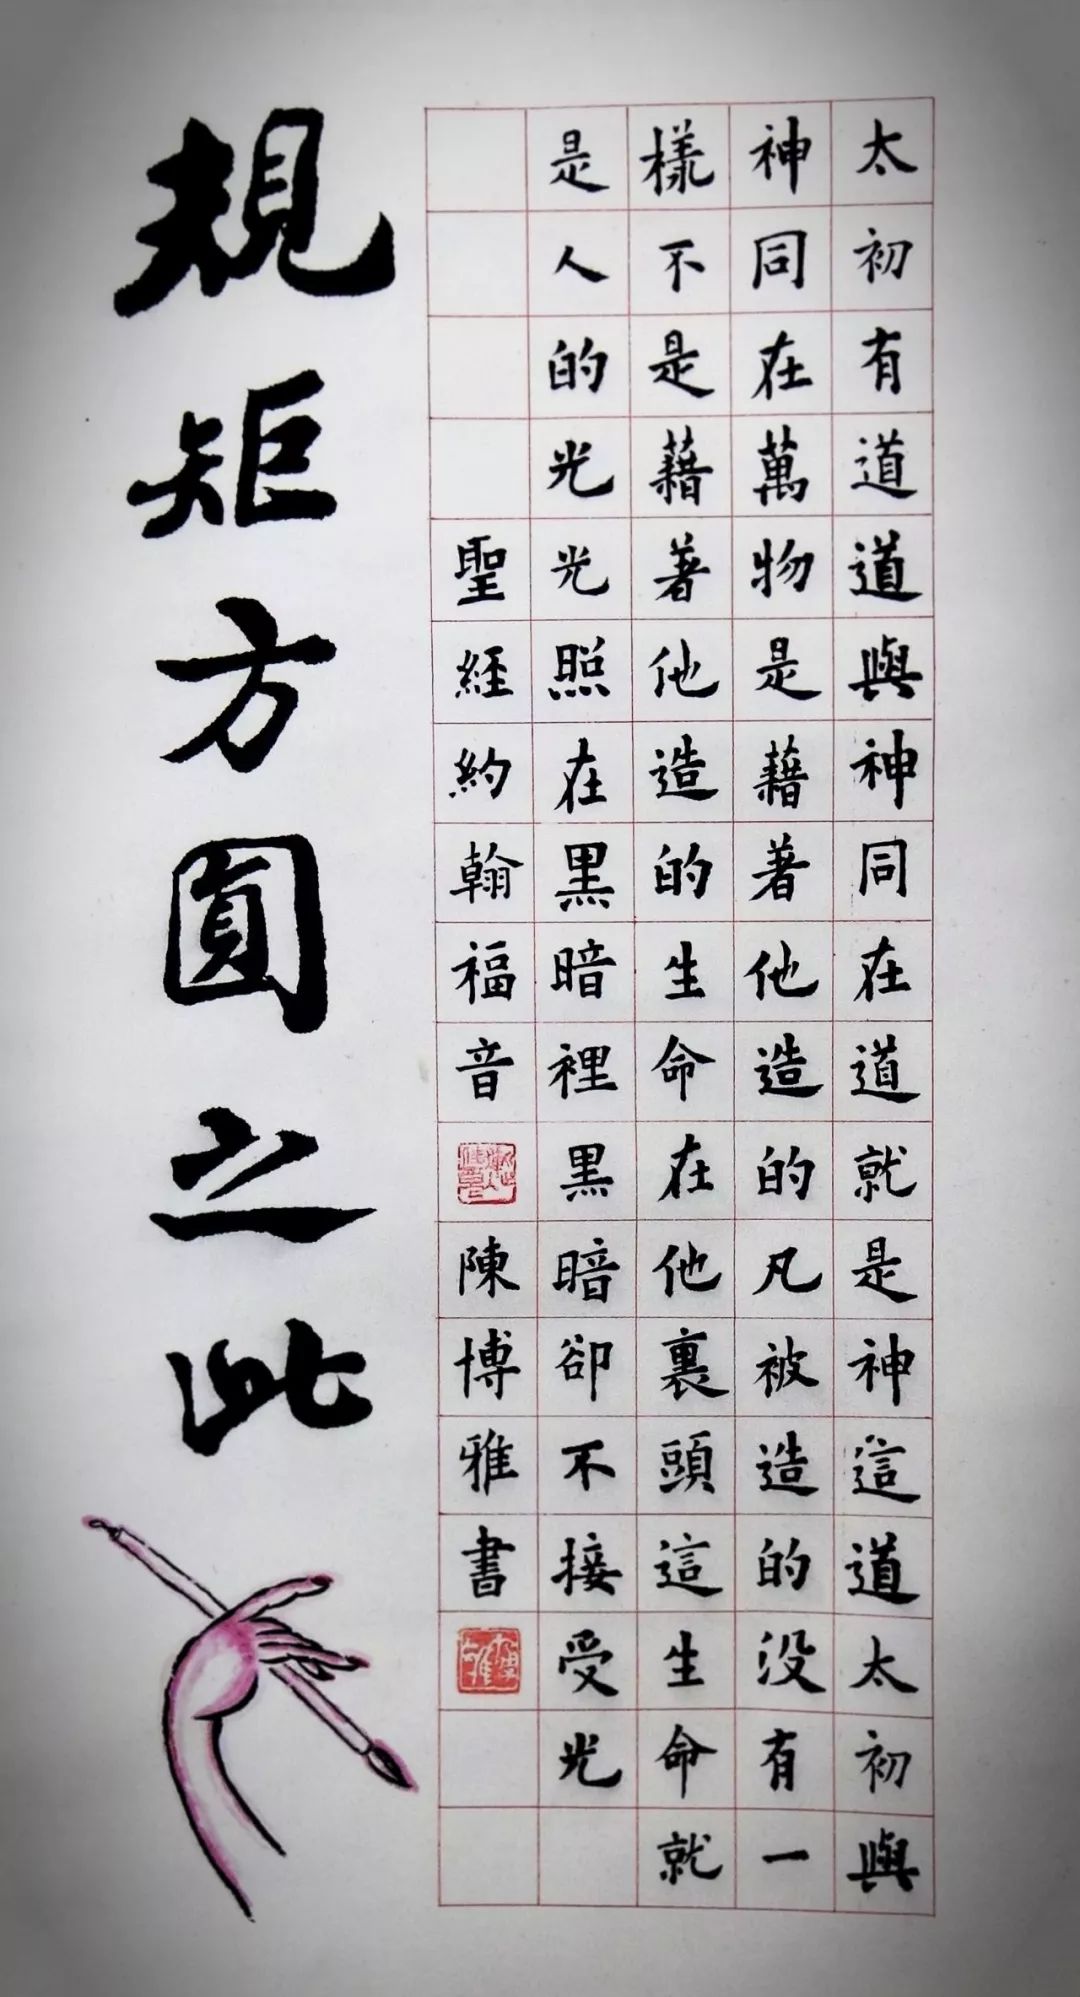 太初有道道與神同在道就是神這道太初與
神同在萬物是藉著他造的凡被造的没有一
樣不是藉著他造的生命在他裏頭這生命就
是人的光光照在黑暗裡黑暗卻不接受光
聖經約翰福音
陳博雅書
規矩方圓之此